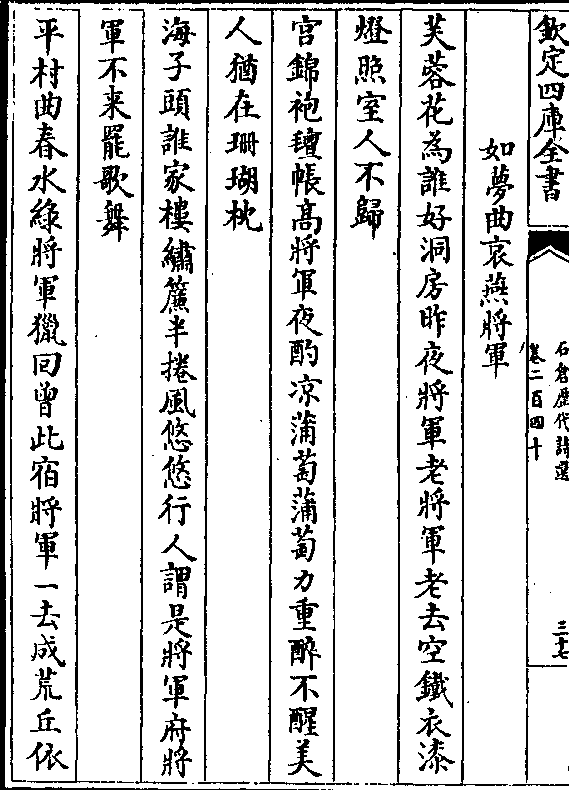 欽定四庫全書
石倉歷代詩選
卷二百四十
三十七
如夢曲哀燕將軍
芙蓉花為誰好洞房昨夜將軍老將軍老去空鐵衣漆
燈照室人不歸
宫錦袍氊帳髙將軍夜酌凉蒲萄蒲萄力重醉不醒美
人猶在珊瑚枕
海子頭誰家樓繡簾半捲風悠悠行人謂是將軍府將
軍不来罷歌舞
平村曲春水緑將軍獵囘曾此宿將軍一去成荒丘依